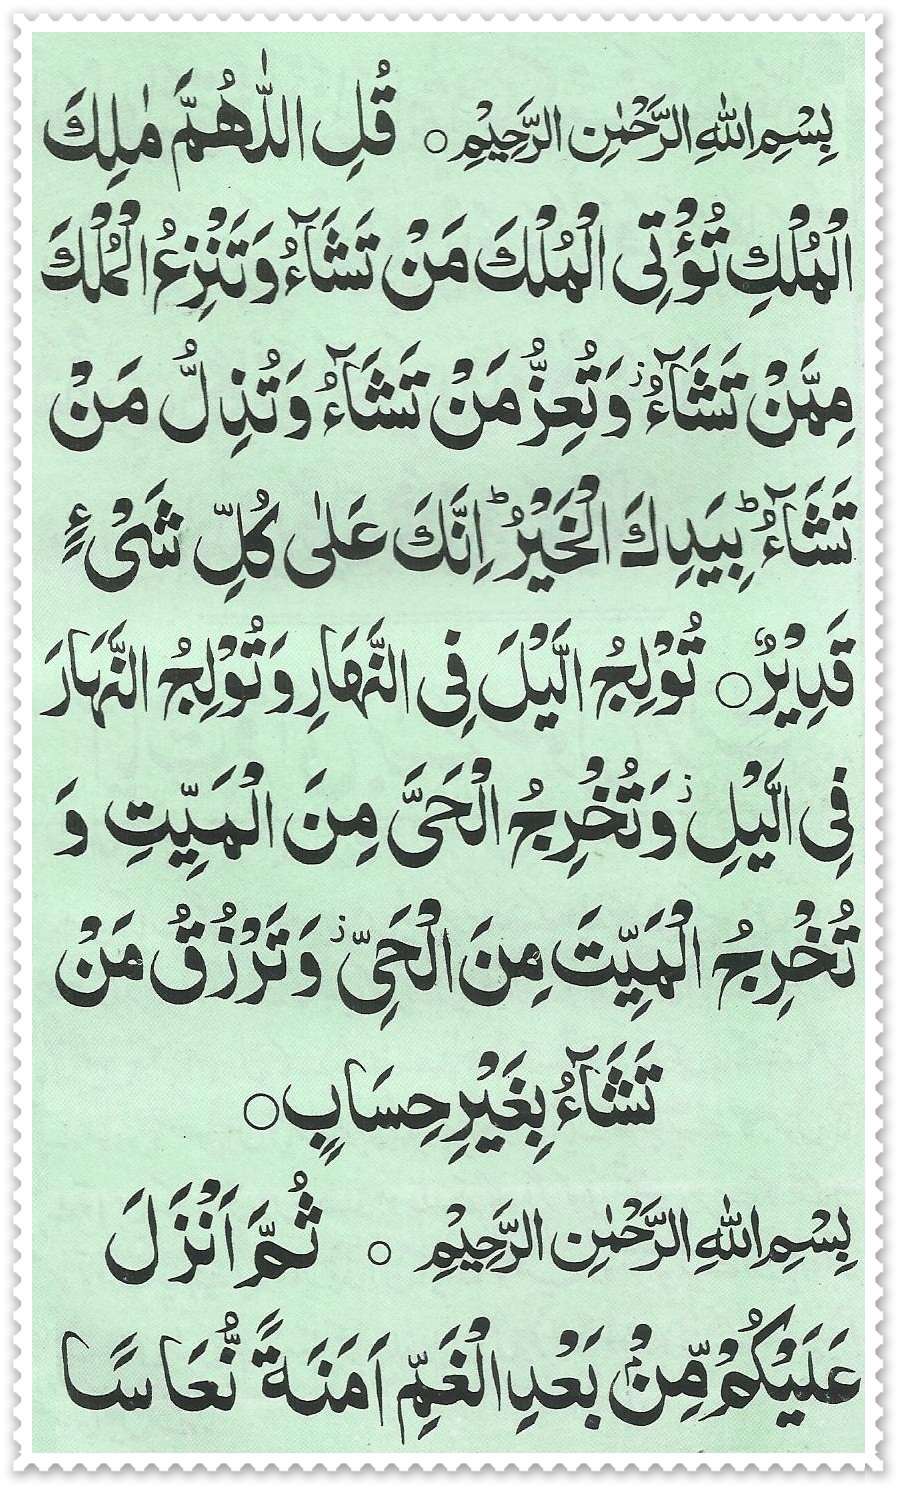 بِسْمِ اللّٰهِ الرَّحْمٰنِ الرَّحِيْمِ ○ قُلِ اللّٰهُمَّ مٰلِكَ
الْمُلْكِ تُؤْتِى الْمُلْكَ مَنْ تَشَآءُ وَتَنْزِعُ الْمُلْكَ
مِمَّنْ تَشَآءُ ز وَتُعِزُّ مَنْ تَشَآءُ وَتُذِلُّ مَنْ
تَشَآءُ ؕ بِيَدِكَ الْخَيْرُ ؕ اِنَّكَ عَلٰى كُلِّ شَىْءٍ
قَدِيْرٌ ○ تُوْلِجُ الَّيْلَ فِى النَّهَارِ وَتُوْلِجُ النَّهَارَ
فِى الَّيْلِ ز وَتُخْرِجُ الْحَىَّ مِنَ الْمَيِّتِ وَ
تُخْرِجُ الْمَيِّتَ مِنَ الْحَىِّ ز وَتَرْزُقُ مَنْ
تَشَآءُ بِغَيْرِ حِسَابٍ ○
بِسْمِ اللّٰهِ الرَّحْمٰنِ الرَّحِيْمِ ○ ثُمَّ اَنْزَلَ
عَلَيْكُمْ مِّنْۢ بَعْدِ الْغَمِّ اَمَنَةً نُّعَاسًا